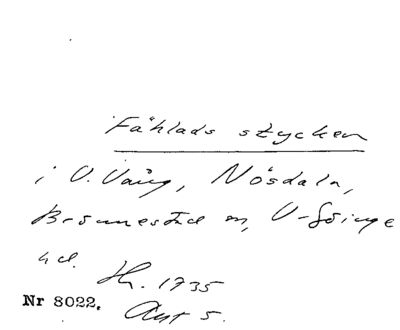 Fählads stycken
i V. Vång, Nösdala,
Brönnestad sn, V-Göinge
hd. Hr. 1735
Nr 8022. Akt 5.